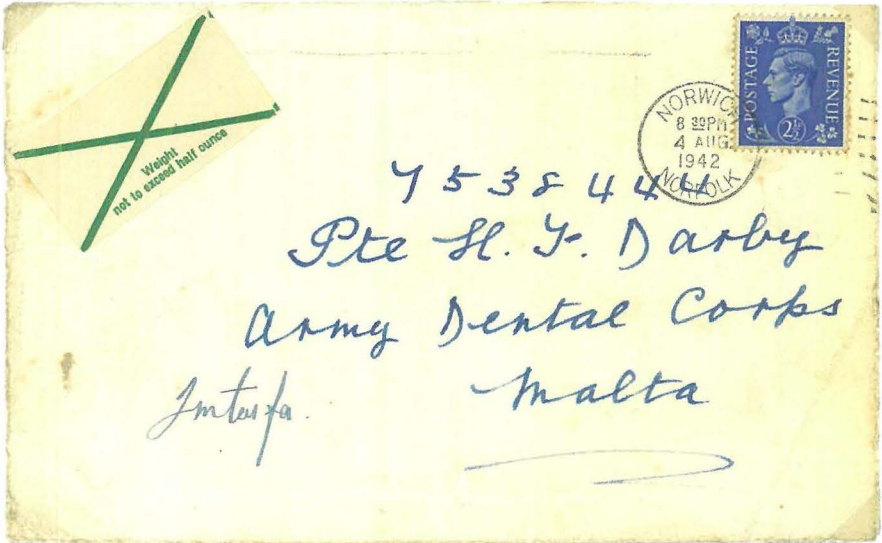 Weight
not to exceed half ounce
POSTAGE REVENUE
2½
NORWICH
8 30PM
4 AUG
1942
NORFOLK
7538444
Pte H. F. Darby
Army Dental Corps
Malta
Imtarfa.